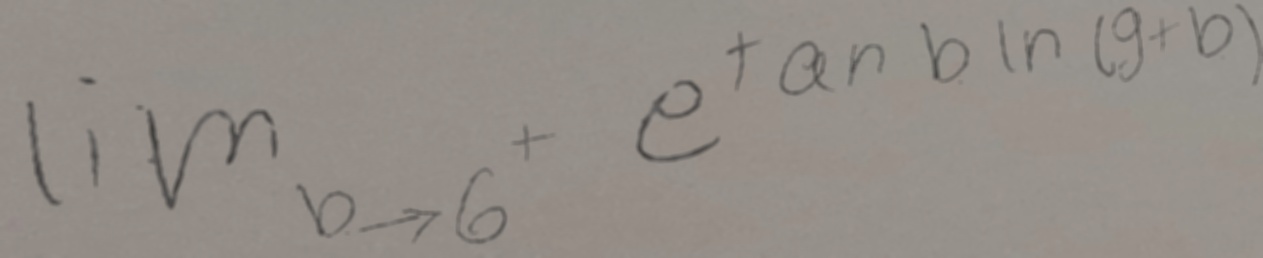 lim_{b→6^+} e^{tan b ln (9+b)}